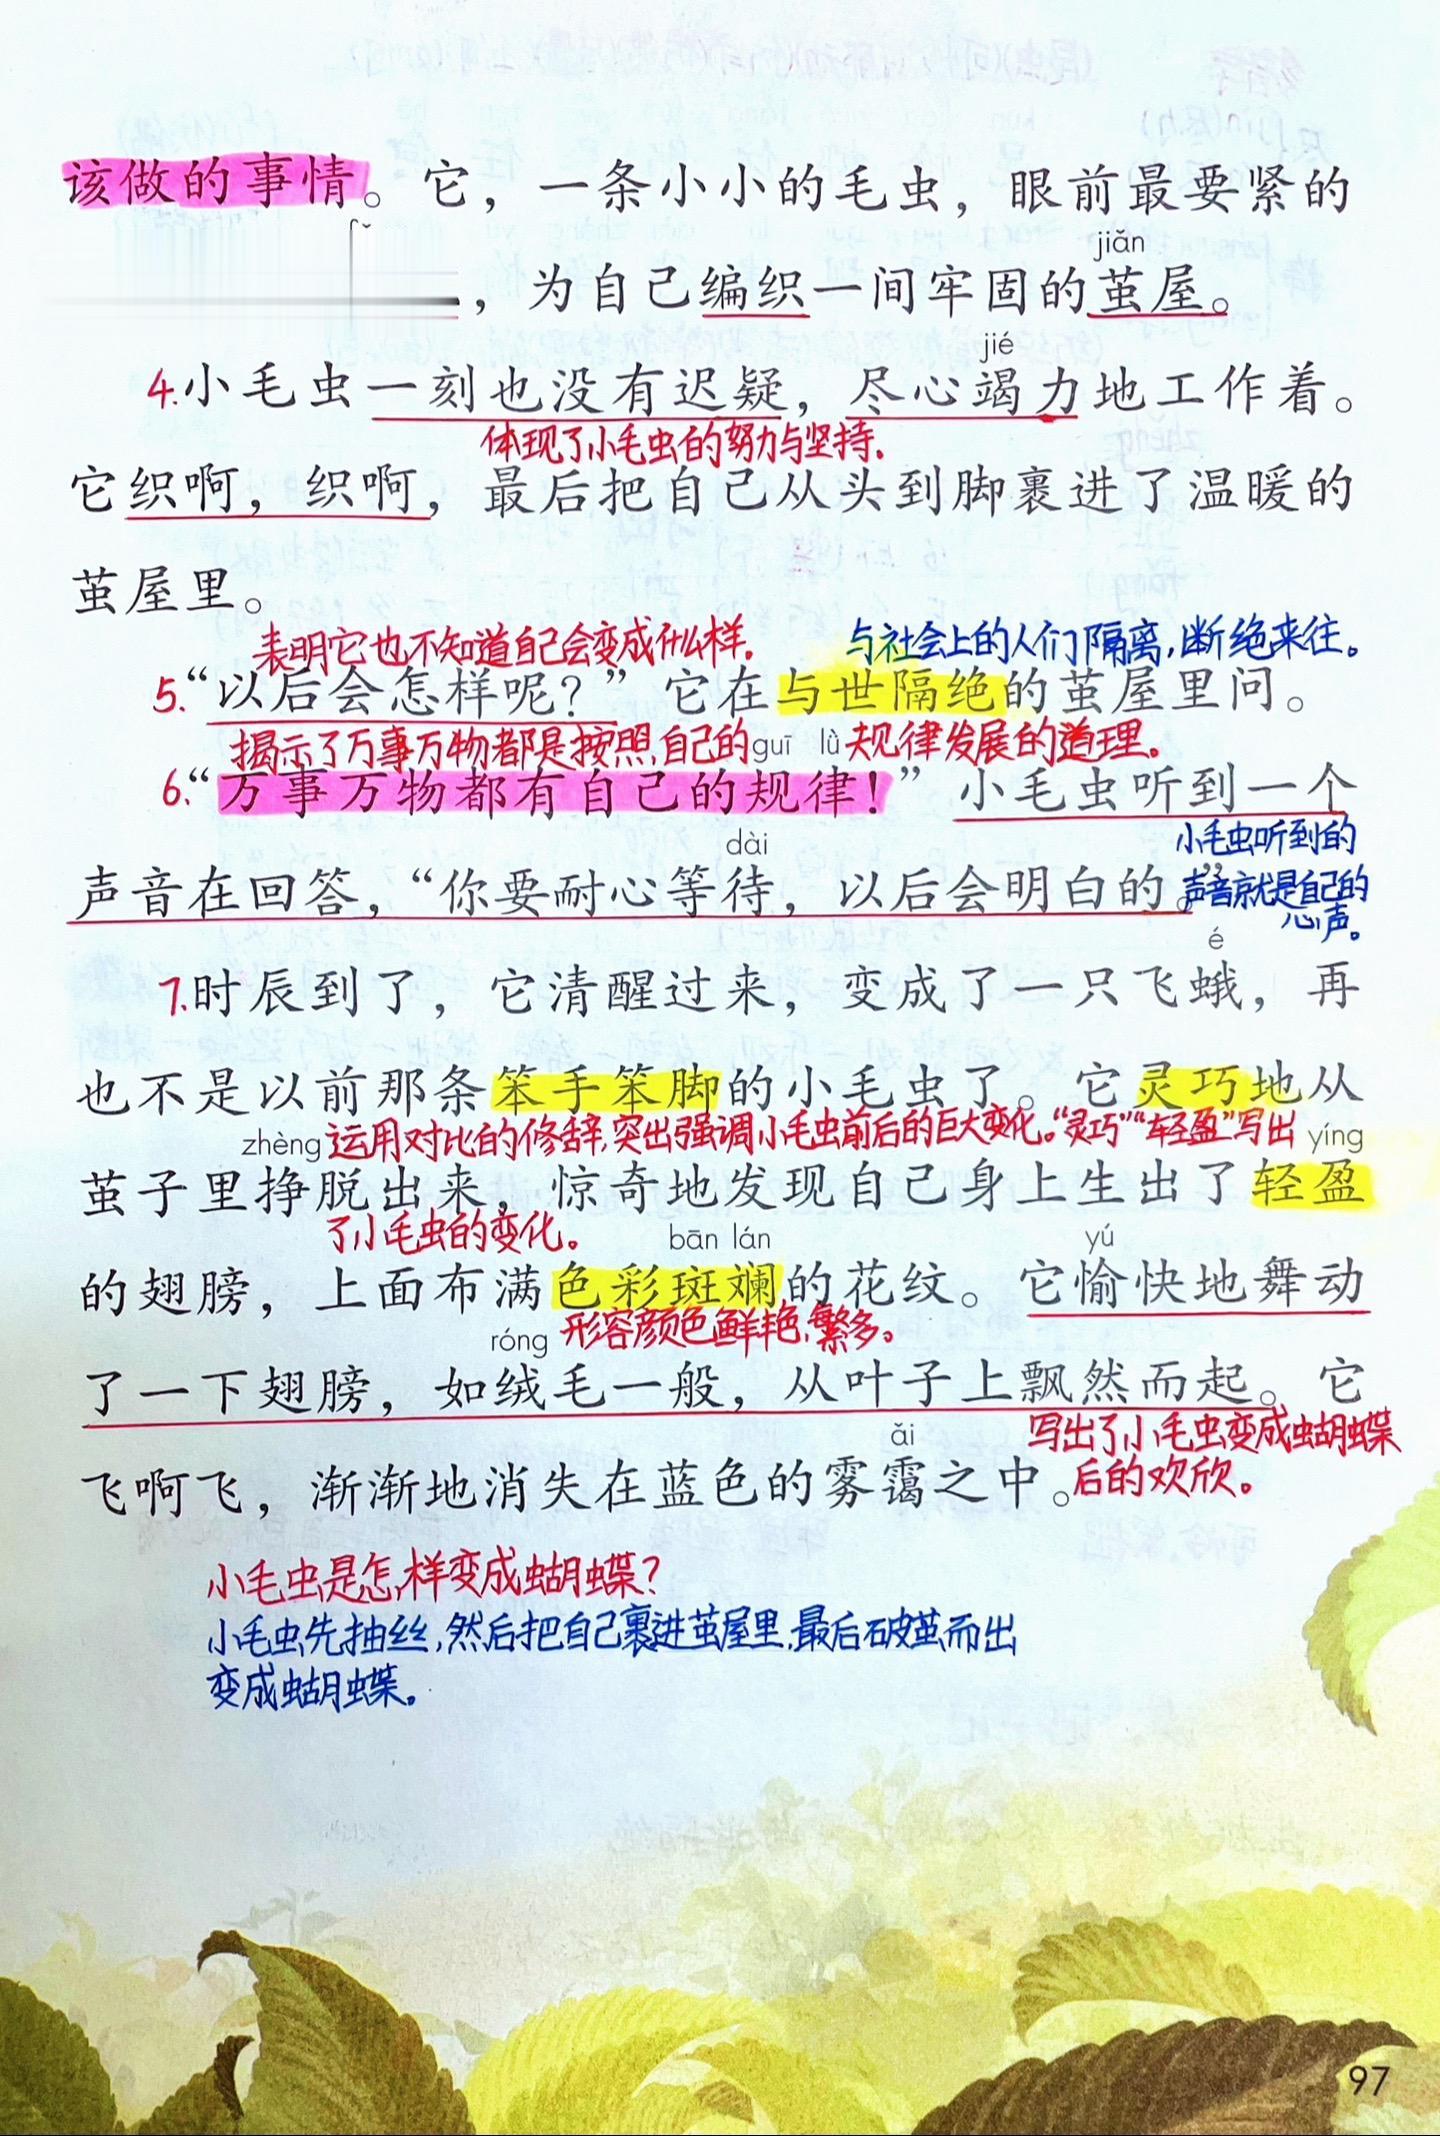 该做的事情。它，一条小小的毛虫，眼前最要紧的
jiǎn
，为自己编织一间牢固的茧屋。
jié
4.小毛虫一刻也没有迟疑，尽心竭力地工作着。
体现了小毛虫的努力与坚持.
它织啊，织啊，最后把自己从头到脚裹进了温暖的
茧屋里。
表明它也不知道自己会变成什么样. 与社会上的人们隔离,断绝来往。
5.“以后会怎样呢？”它在与世隔绝的茧屋里问。
揭示了万事万物都是按照自己的 guī lǜ 规律发展的道理。
6.“万事万物都有自己的规律！”小毛虫听到一个
小毛虫听到的
dài
声音在回答，“你要耐心等待，以后会明白的。”
声音就是自己的
心声。
é
7.时辰到了，它清醒过来，变成了一只飞蛾，再
也不是以前那条笨手笨脚的小毛虫了。它灵巧地从
zhèng 运用对比的修辞,突出强调小毛虫前后的巨大变化。“灵巧”“轻盈”写出 yíng
茧子里挣脱出来，惊奇地发现自己身上生出了轻盈
了小毛虫的变化。
bān lán yú
的翅膀，上面布满色彩斑斓的花纹。它愉快地舞动
róng 形容颜色鲜艳,繁多。
了一下翅膀，如绒毛一般，从叶子上飘然而起。它
ǎi 写出了小毛虫变成蝴蝶
飞啊飞，渐渐地消失在蓝色的雾霭之中。
后的欢欣。
小毛虫是怎样变成蝴蝶?
小毛虫先抽丝,然后把自己裹进茧屋里,最后破茧而出
变成蝴蝶。
97